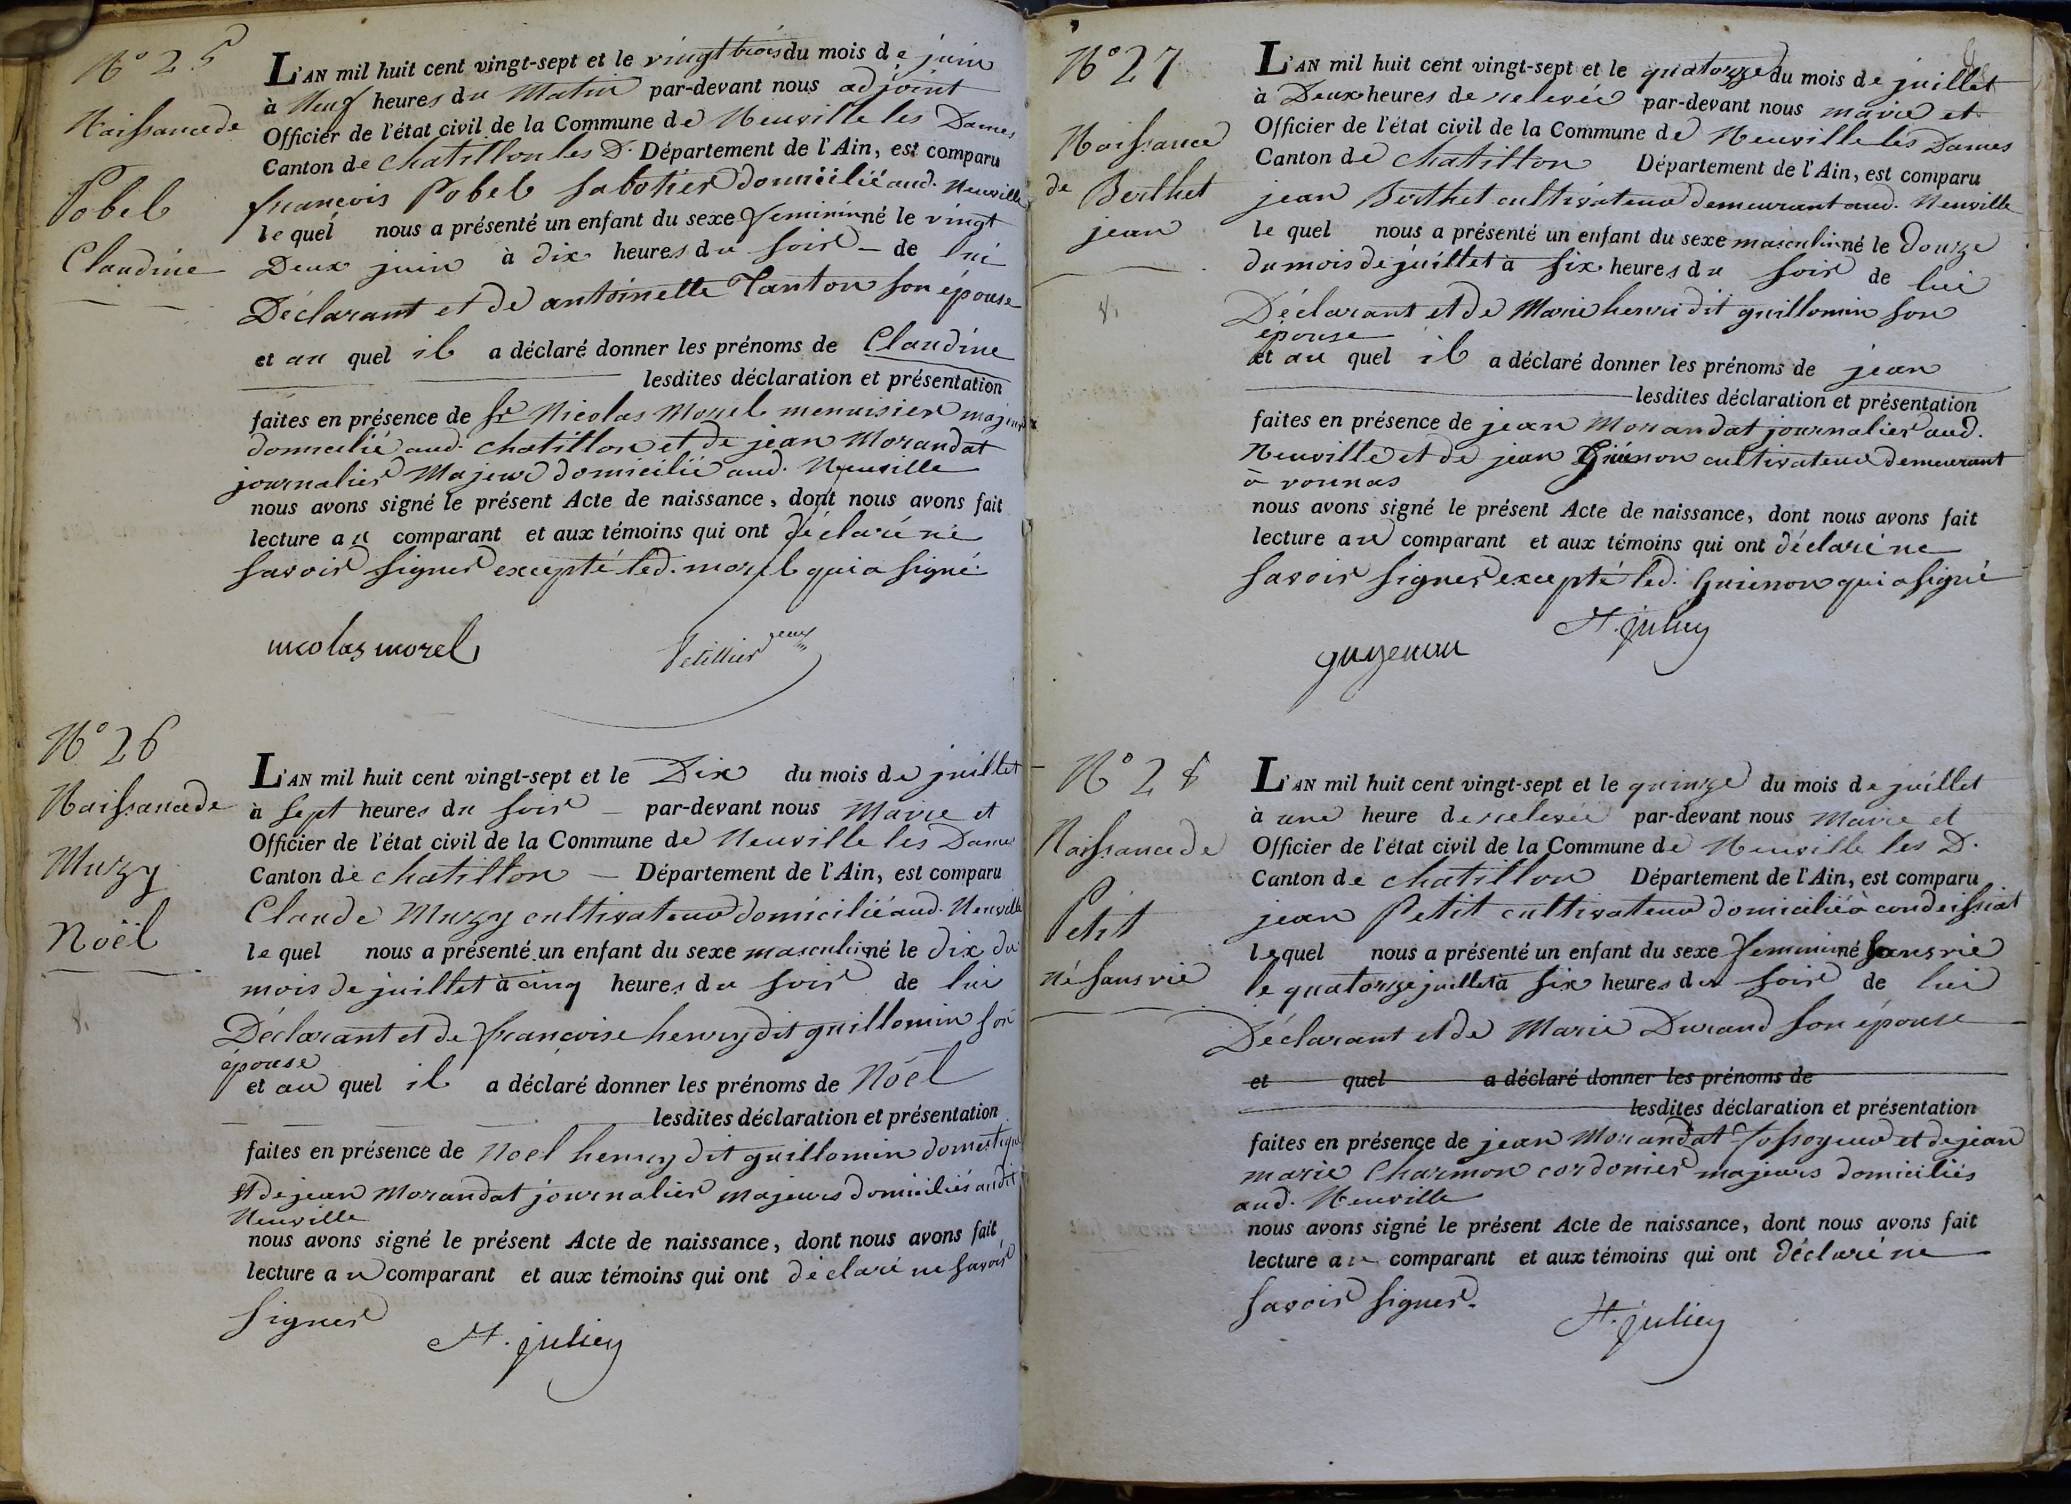 N° 25
Naissance de
Pobel
Claudine
L'AN mil huit cent vingt-sept et le vingt trois du mois de juin
à Neuf heures du Matin par-devant nous adjoint
Officier de l'état civil de la Commune de Neuville les Dames
Canton de Chatillon les D. Département de l'Ain, est comparu
françois Pobel Sabotier domicilié aud. Neuville
le quel nous a présenté un enfant du sexe feminin né le vingt
Deux juin à dix heures du soir — de lui
Déclarant et de antoinette Tanton son épouse
et au quel il a déclaré donner les prénoms de Claudine
lesdites déclaration et présentation
faites en présence de Sr Nicolas Morel menuisier majeur
domicilié aud. chatillon et de jean Morandat
journalier Majeur domicilié aud. Neuville
nous avons signé le présent Acte de naissance, dont nous avons fait
lecture au comparant et aux témoins qui ont déclaré ne
savoir signer excepté led. morel qui a signé
nicolas morel
N° 26
Naissance de
Muzy
Noël
L'AN mil huit cent vingt-sept et le Dix du mois de juillet
à Sept heures du soir — par-devant nous Maire et
Officier de l'état civil de la Commune de Neuville les Dames
Canton de chatillon — Département de l'Ain, est comparu
Claude Muzy cultivateur domicilié aud. Neuville
le quel nous a présenté un enfant du sexe masculin né le dix du
mois de juillet à cinq heures du soir de lui
Déclarant et de françoise henry dit guillomin son
épouse
et au quel il a déclaré donner les prénoms de Noël
lesdites déclaration et présentation
faites en présence de Noel henry dit guillomin domestique
et de jean Morandat journalier majeurs domiciliés audit
Neuville
nous avons signé le présent Acte de naissance, dont nous avons fait
lecture au comparant et aux témoins qui ont déclaré ne savoir
signer
St. julien
N° 27
Naissance
de Berthet
jean
L'AN mil huit cent vingt-sept et le quatorze du mois de juillet
à Deux heures de relevée par-devant nous maire et
Officier de l'état civil de la Commune de Neuville les Dames
Canton de Chatillon Département de l'Ain, est comparu
jean Berthet cultivateur demeurant aud. Neuville
le quel nous a présenté un enfant du sexe masculin né le Douze
du mois de juillet à six heures du soir de lui
Déclarant et de Marie henri dit guillomin son
épouse
et au quel il a déclaré donner les prénoms de jean
lesdites déclaration et présentation
faites en présence de jean Morandat journalier aud.
Neuville et de jean Guienon cultivateur demeurant
à vonnas
nous avons signé le présent Acte de naissance, dont nous avons fait
lecture au comparant et aux témoins qui ont déclaré ne
savoir signer excepté led. Guienon qui a signé
St. julien
guyenon
N° 28
Naissance de
Petit
Né sans vie
L'AN mil huit cent vingt-sept et le quinze du mois de juillet
à une heure de relevée par-devant nous Maire et
Officier de l'état civil de la Commune de Neuville les D.
Canton de chatillon Département de l'Ain, est comparu
jean Petit cultivateur domicilié à condeissiat
lequel nous a présenté un enfant du sexe feminin né sans vie
le quatorze juillet à six heures du soir de lui
Déclarant et de Marie Durand son épouse
et quel a déclaré donner les prénoms de
lesdites déclaration et présentation
faites en présence de jean Morandat fossoyeur et de jean
marie Charmon cordonier majeurs domiciliés
aud. Neuville
nous avons signé le présent Acte de naissance, dont nous avons fait
lecture au comparant et aux témoins qui ont déclaré ne
savoir signer.
St. julien